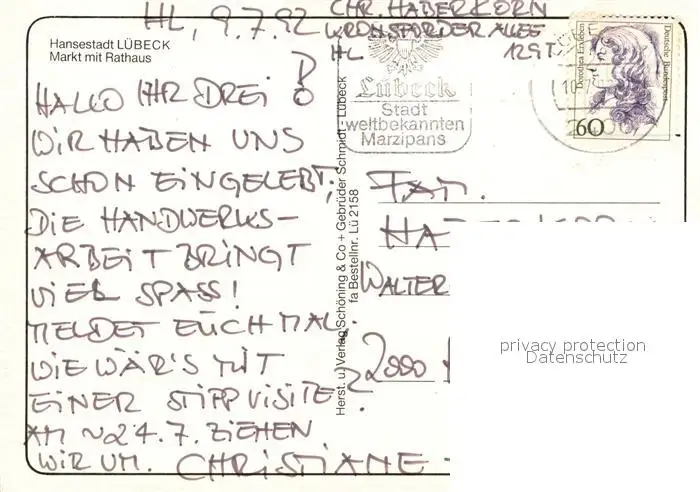 HL, 9.7.92
CHR. HABERKORN
KRONSFORDER ALLEE
HL 129T
Hansestadt LÜBECK
Markt mit Rathaus
HALLO IHR DREI!
WIR HABEN UNS
SCHON EINGELEBT;
DIE HANDWERKS-
ARBEIT BRINGT
VIEL SPASS!
MELDET EUCH MAL.
WIE WÄR'S MIT
EINER STIPPVISITE?
AM ~24.7. ZIEHEN
WIR UM. CHRISTIANE -
Lübeck
Stadt
weltbekannten
Marzipans
Dorothea Erxleben
Deutsche Bundespost
60
Herst. u. Verlag Schöning & Co + Gebrüder Schmidt - Lübeck
fa Bestellnr. Lü 2158
FAM.
WALTER
2000
privacy protection
Datenschutz